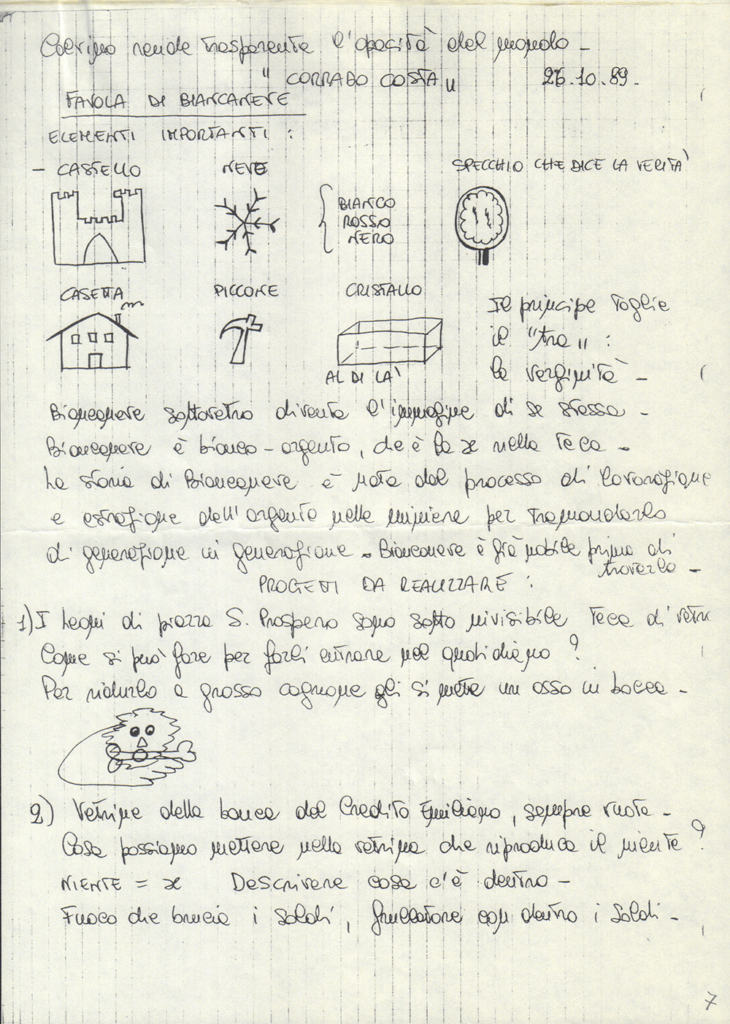 rende trasparente l'opacità del mondo -
" CORRADO COSTA " 26.10.89.
FAVOLA DI BIANCANEVE
ELEMENTI IMPORTANTI :
- CASTELLO NEVE SPECCHIO CHE DICE LA VERITA'
BIANCO
ROSSO
NERO
CASETTA PICCONE CRISTALLO
AL DI LA'
Il principe toglie
il "tra" :
la verginità -
Biancaneve sottovetro diventa l'immagine di se stessa -
Biancaneve è bianco-argento, che è la x nella teca -
La storia di Biancaneve è nata dal processo di lavorazione
e estrazione dell'argento nelle miniere per tramandarlo
di generazione in generazione. Biancaneve è già nobile prima di
trovarlo -
PROGETTI DA REALIZZARE :
1) I leoni di piazza S. Prospero sono sotto invisibile teca di vetro
Come si può fare per farli entrare nel quotidiano ?
Per ridurlo a grosso cagnone gli si mette un osso in bocca -
2) Vetrine della banca del Credito Emiliano, sempre vuote -
Cosa possiamo mettere nella vetrina che riproduca il niente ?
NIENTE = x Descrivere cosa c'è dentro -
Fuoco che brucia i soldi, frullatore con dentro i soldi -
7